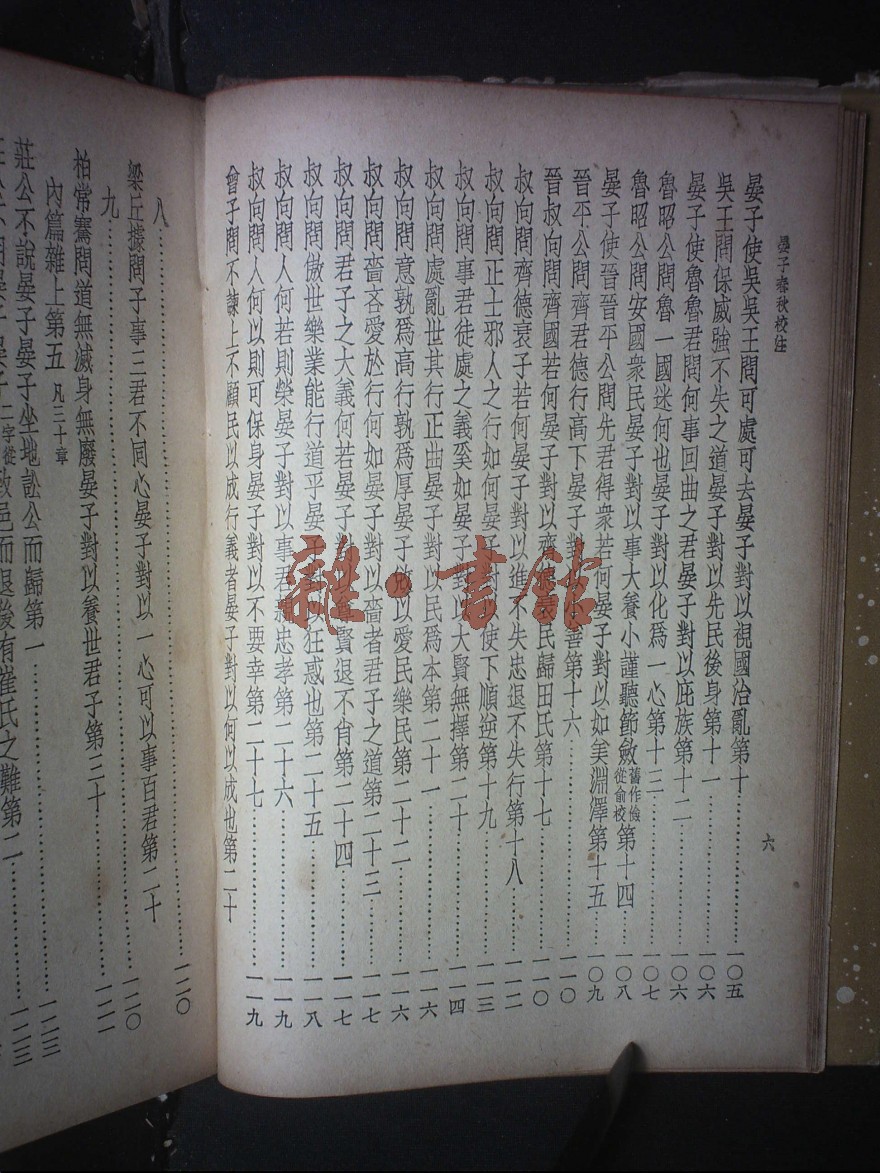 晏子春秋校注
六
晏子使吳吳王問可處可去晏子對以視國治亂第十…一〇五
吳王問保威強不失之道晏子對以先民後身第十一…一〇六
晏子使魯魯君問何事回曲之君晏子對以庇族第十二…一〇六
魯昭公問魯一國迷何也晏子對以化為一心第十三…一〇七
魯昭公問安國衆民晏子對以事大養小謹聽節斂舊作儉從俞校第十四…一〇八
晏子使晉晉平公問先君得衆若何晏子對以如美淵澤第十五…一〇九
晉平公問齊君德行高下晏子對以小善第十六…一一〇
晉叔向問齊國若何晏子對以齊德衰民歸田氏第十七…一一〇
叔向問齊德衰子若何晏子對以進不失忠退不失行第十八…一一二
叔向問正士邪人之行如何晏子對以使下順逆第十九…一一三
叔向問事君徒處之義奚如晏子對以大賢無擇第二十…一一四
叔向問處亂世其行正曲晏子對以民為本第二十一…一一六
叔向問意孰為高行孰為厚晏子對以愛民樂民第二十二…一一六
叔向問嗇吝愛於行何如晏子對以嗇者君子之道第二十三…一一七
叔向問君子之大義何若晏子對以尊賢退不肖第二十四…一一七
叔向問傲世樂業能行道乎晏子對以狂惑也第二十五…一一八
叔向問人何若則榮晏子對以事君親忠孝第二十六…一一九
叔向問人何以則可保身晏子對以不要幸第二十七…一一九
曾子問不諫上不顧民以成行義者晏子對以何以成也第二十
八…一二〇
梁丘據問子事三君不同心晏子對以一心可以事百君第二十
九…一二〇
柏常騫問道無滅身無廢晏子對以養世君子第三十…一二一
內篇雜上第五 凡三十章
莊公不說晏子晏子坐地訟公而歸第一…一二三
二字從 敓邑而退後有崔氏之難第二…一二三
雜·書館